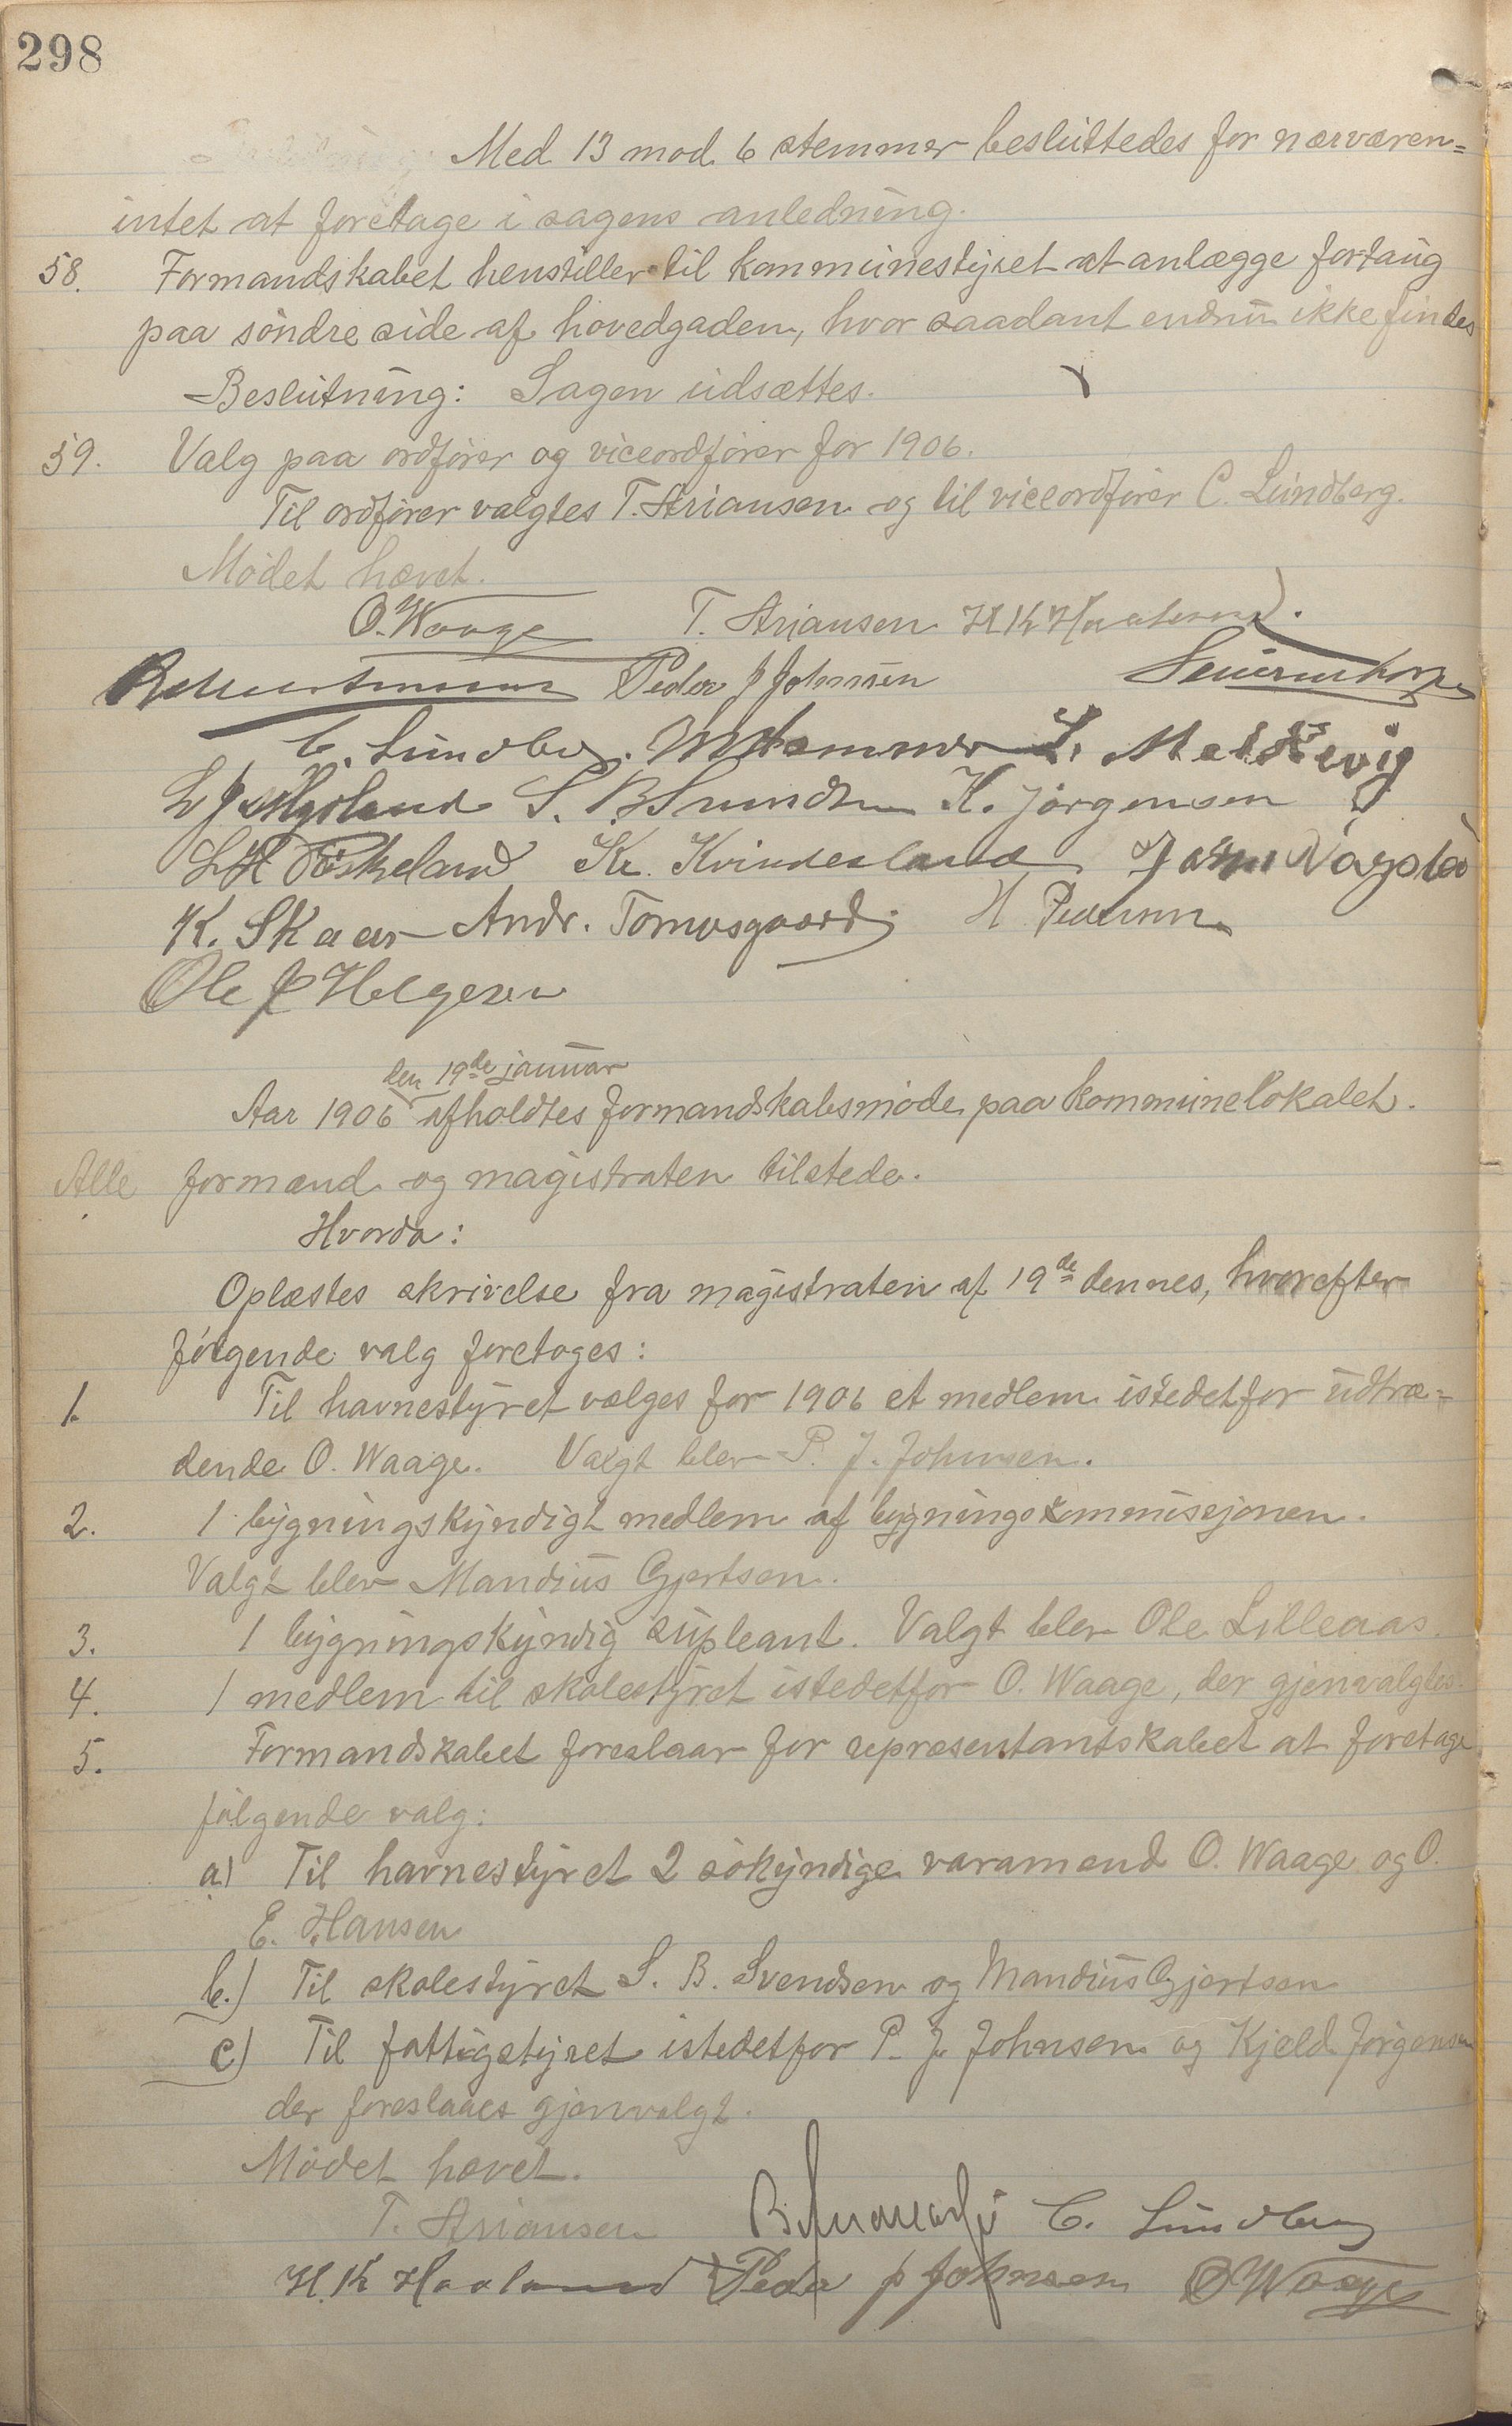 298
Med 13 mod 6 stemmer besluttedes for nærværen=
intet at foretage i sagens anledning.
58. Formandskabet henstiller til kommunestyret at anlægge fortaug
paa søndre side af hovedgaden, hvor saadant endnu ikke findes
Beslutning: Sagen udsættes.
59. Valg paa ordfører og viceordfører for 1906.
Til ordfører valgtes T. Ariansen og til viceordfører C. Lundberg.
Mødet hævet.
O. Waage T. Ariansen H K Haaland.
Peder J Johnsen
C. Lundberg. S. Meldsevig
L J S. B. K. Jørgensen
L H Øskeland Kr. Kvindesland John
K. Skaar Andr. Tomasgaard. H Pedersen
Ole J Helgesen
den 19de januar
Aar 1906 afholdtes formandskabsmøde paa kommunelokalet.
Alle formænd og magistraten tilstede.
Hvorda:
Oplæstes skrivelse fra magistraten af 19de dennes, hvorefter
følgende valg foretoges:
1. Til havnestyret vælges for 1906 et medlem istedetfor udtræ=
dende O. Waage. Valgt blev P. J. Johnsen.
2. 1 bygningskyndigt medlem af bygningskommissjonen.
Valgt blev Mandius Gjertsen.
3. 1 bygningskyndig supleant. Valgt blev Ole Lilleaas.
4. 1 medlem til skolestyret istedetfor O. Waage, der gjenvalgtes.
5. Formandskabet foreslaar for repræsentantskabet at foretage
følgende valg:
a) Til havnestyret 2 søkyndige varamænd O. Waage og O.
E. Hansen
b.) Til skolestyret S. B. Svendsen og Mandius Gjertsen
c) Til fattigstyret istedetfor P. J. Johnsen og Kjeld Jørgensen
der foreslaaes gjenvalgt.
Mødet hævet.
T. Ariansen C. Lundberg
H. K Haaland Peder J Johnsen O Waage